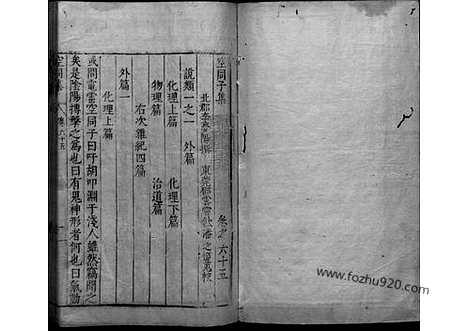 空同子集 卷之六十五
北郡李夢陽撰 東莞鄧雲霄 潘之恒 校
說類一之一 外篇
化理上篇 化理下篇
物理篇 治道篇
右次雜紀四篇
外篇一
化理上篇
或問電雷空同子曰吁胡叩淵于淺人雖然竊聞之
矣是陰陽搏擊之為也曰有鬼神形者何也曰氣動
空同集 卷六十五 一
www.fozhu920.com